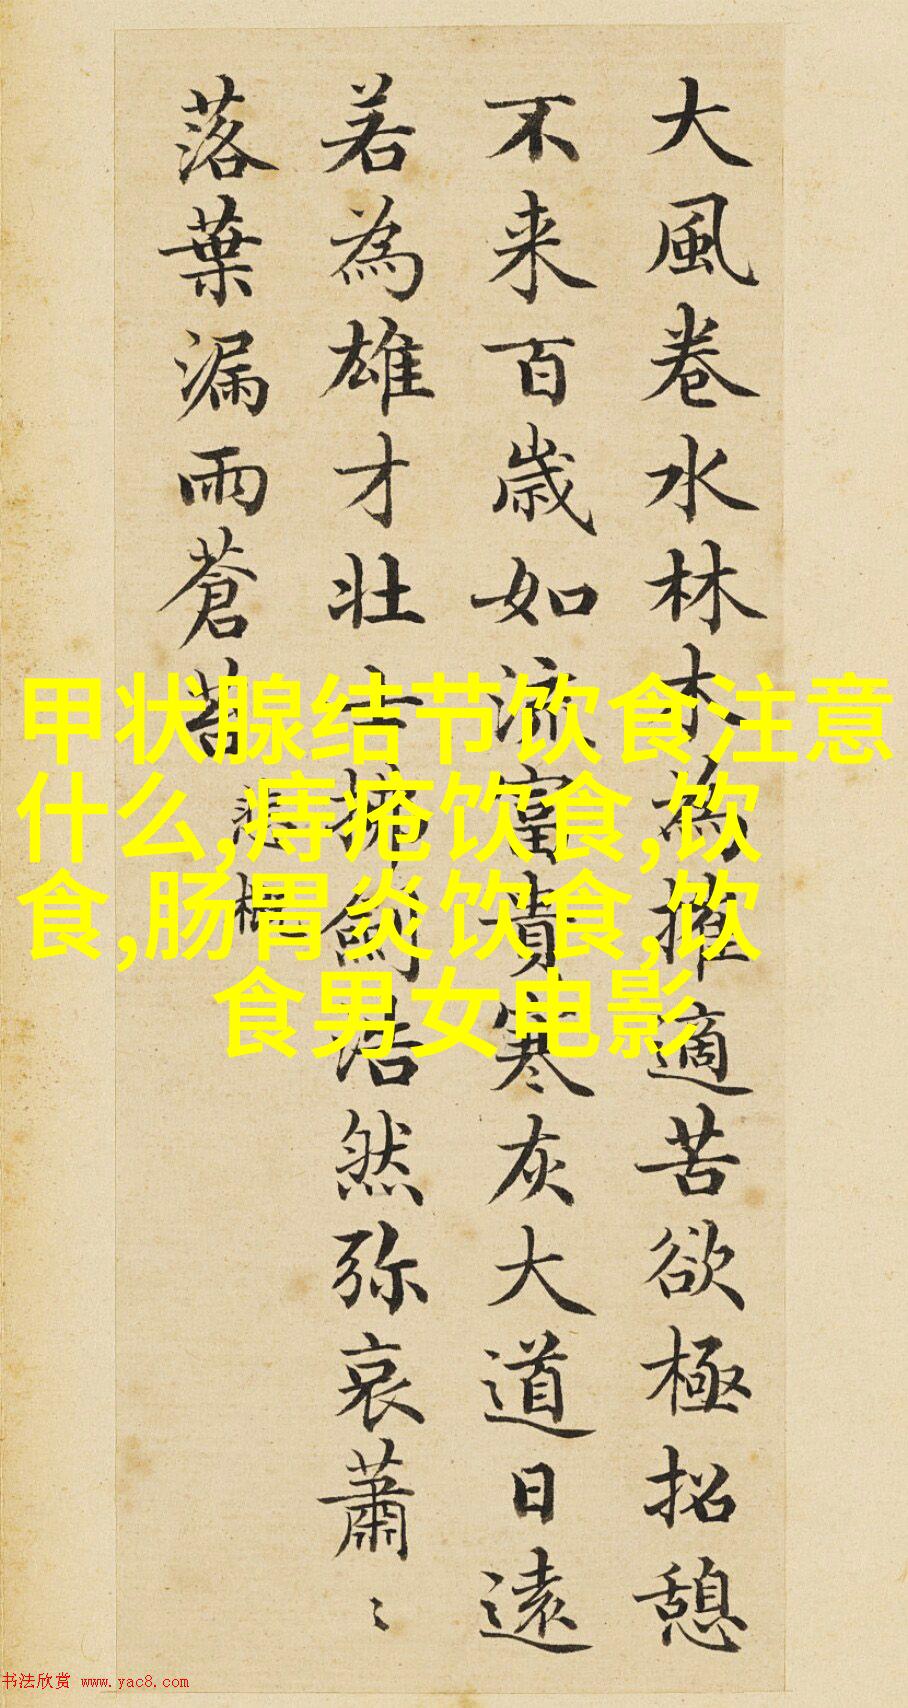 大風卷水林木為摧適苦欲極招憩
不来百歳如流富貴寒灰大道日遠
若為雄才壮士劍浩然弥哀蕭〻
落葉漏雨蒼苔
悲慨
甲状腺结节饮食注意
什么,痔疮饮食,饮
食,肠胃炎饮食,饮
食男女电影
书法欣赏 www.yac8.com